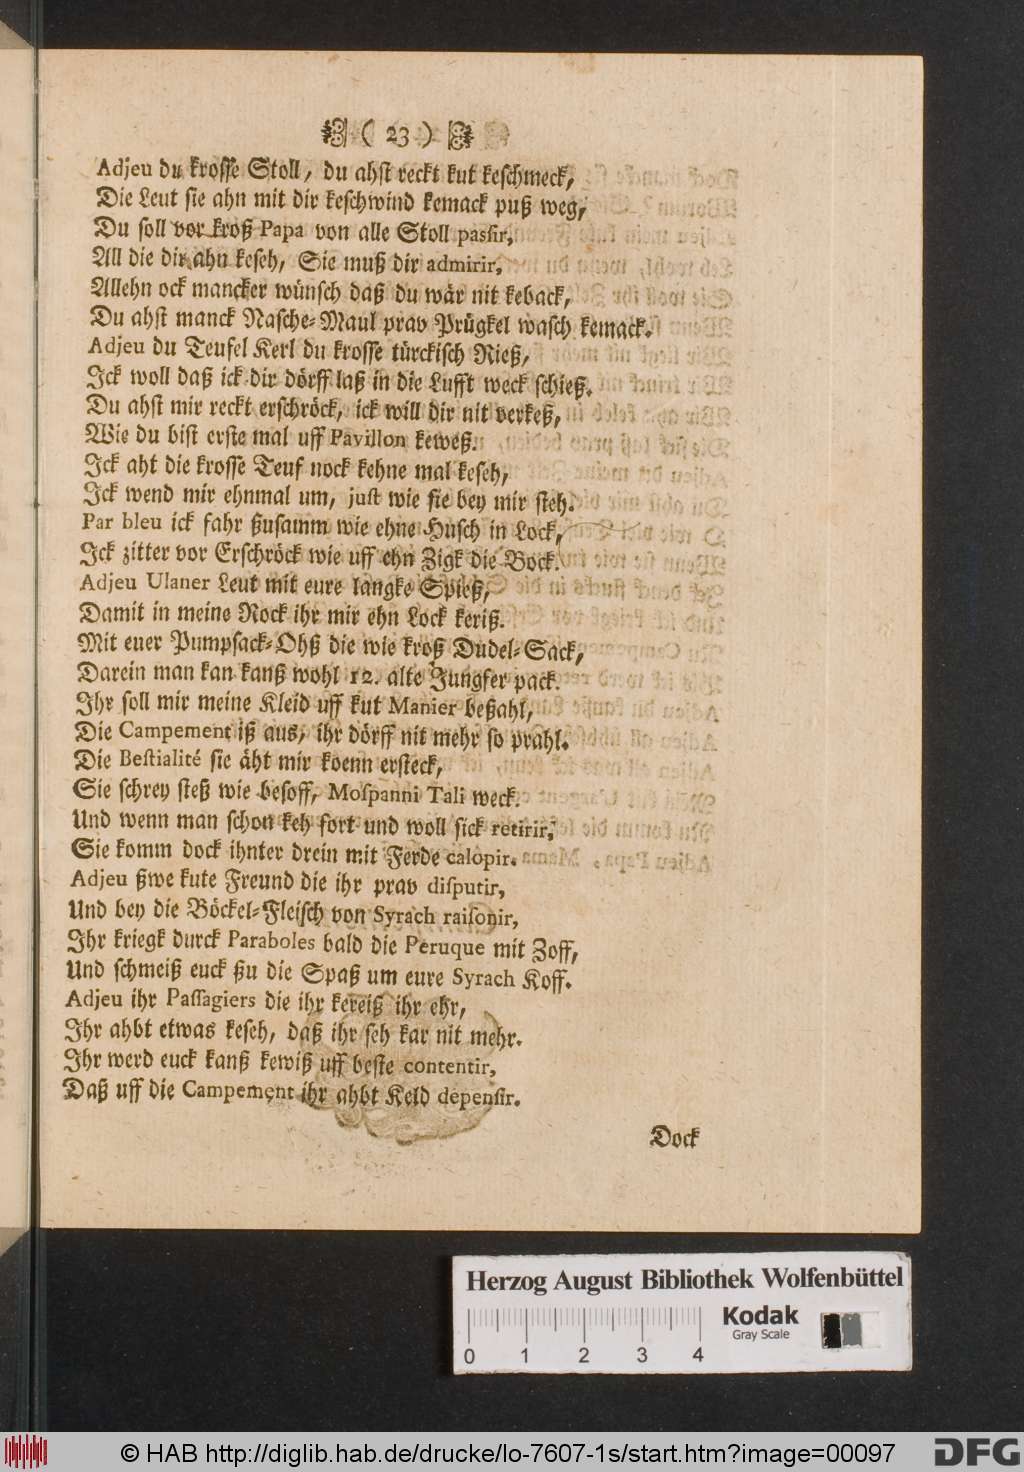 ( 23 )
Adjeu du krosse Stoll, du ahst reckt kut keschmeck,
Die Leut sie ahn mit dir keschwind kemack puß weg,
Du soll vor kroß Papa von alle Stoll passir,
All die dir ahn keseh, Sie muß dir admirir,
Allehn ock mancker wünsch daß du wär nit keback,
Du ahst manck Nasche-Maul prav Prügkel wasch kemack.
Adjeu du Teufel Kerl du krosse türckisch Rieß,
Ick woll daß ick dir dörff laß in die Lufft weck schieß.
Du ahst mir reckt erschröck, ick will dir nit verkeß,
Wie du bist erste mal uff Pavillon keweß.
Ick aht die krosse Teuf nock kehne mal keseh,
Ick wend mir ehnmal um, just wie sie bey mir steh.
Par bleu ick fahr ßusamm wie ehne Husch in Lock,
Ick zitter vor Erschröck wie uff ehn Zigk die Bock.
Adjeu Ulaner Leut mit eure langke Spieß,
Damit in meine Rock ihr mir ehn Lock keriß.
Mit euer Pumpsack-Ohß die wie kroß Dudel-Sack,
Darein man kan kanß wohl 12. alte Jungfer pack.
Ihr soll mir meine Kleid uff kut Manier beßahl,
Die Campement iß aus, ihr dörff nit mehr so prahl.
Die Bestialité sie äht mir koenn ersteck,
Sie schrey steß wie besoff, Mospanni Tali weck.
Und wenn man schon keh fort und woll sick retirir,
Sie komm dock ihnter drein mit Ferde calopir.
Adjeu ßwe kute Freund die ihr prav disputir,
Und bey die Böckel-Fleisch von Syrach raisonir,
Ihr kriegk durck Paraboles bald die Peruque mit Zoff,
Und schmeiß euck ßu die Spaß um eure Syrach Koff.
Adjeu ihr Passagiers die ihr kereiß ihr ehr,
Ihr ahbt etwas keseh, daß ihr seh kar nit mehr.
Ihr werd euck kanß kewiß uff beste contentir,
Daß uff die Campement ihr ahbt Keld depensir.
Dock
Herzog August Bibliothek Wolfenbüttel
Kodak
Gray Scale
0 1 2 3 4
© HAB http://diglib.hab.de/drucke/lo-7607-1s/start.htm?image=00097
DFG